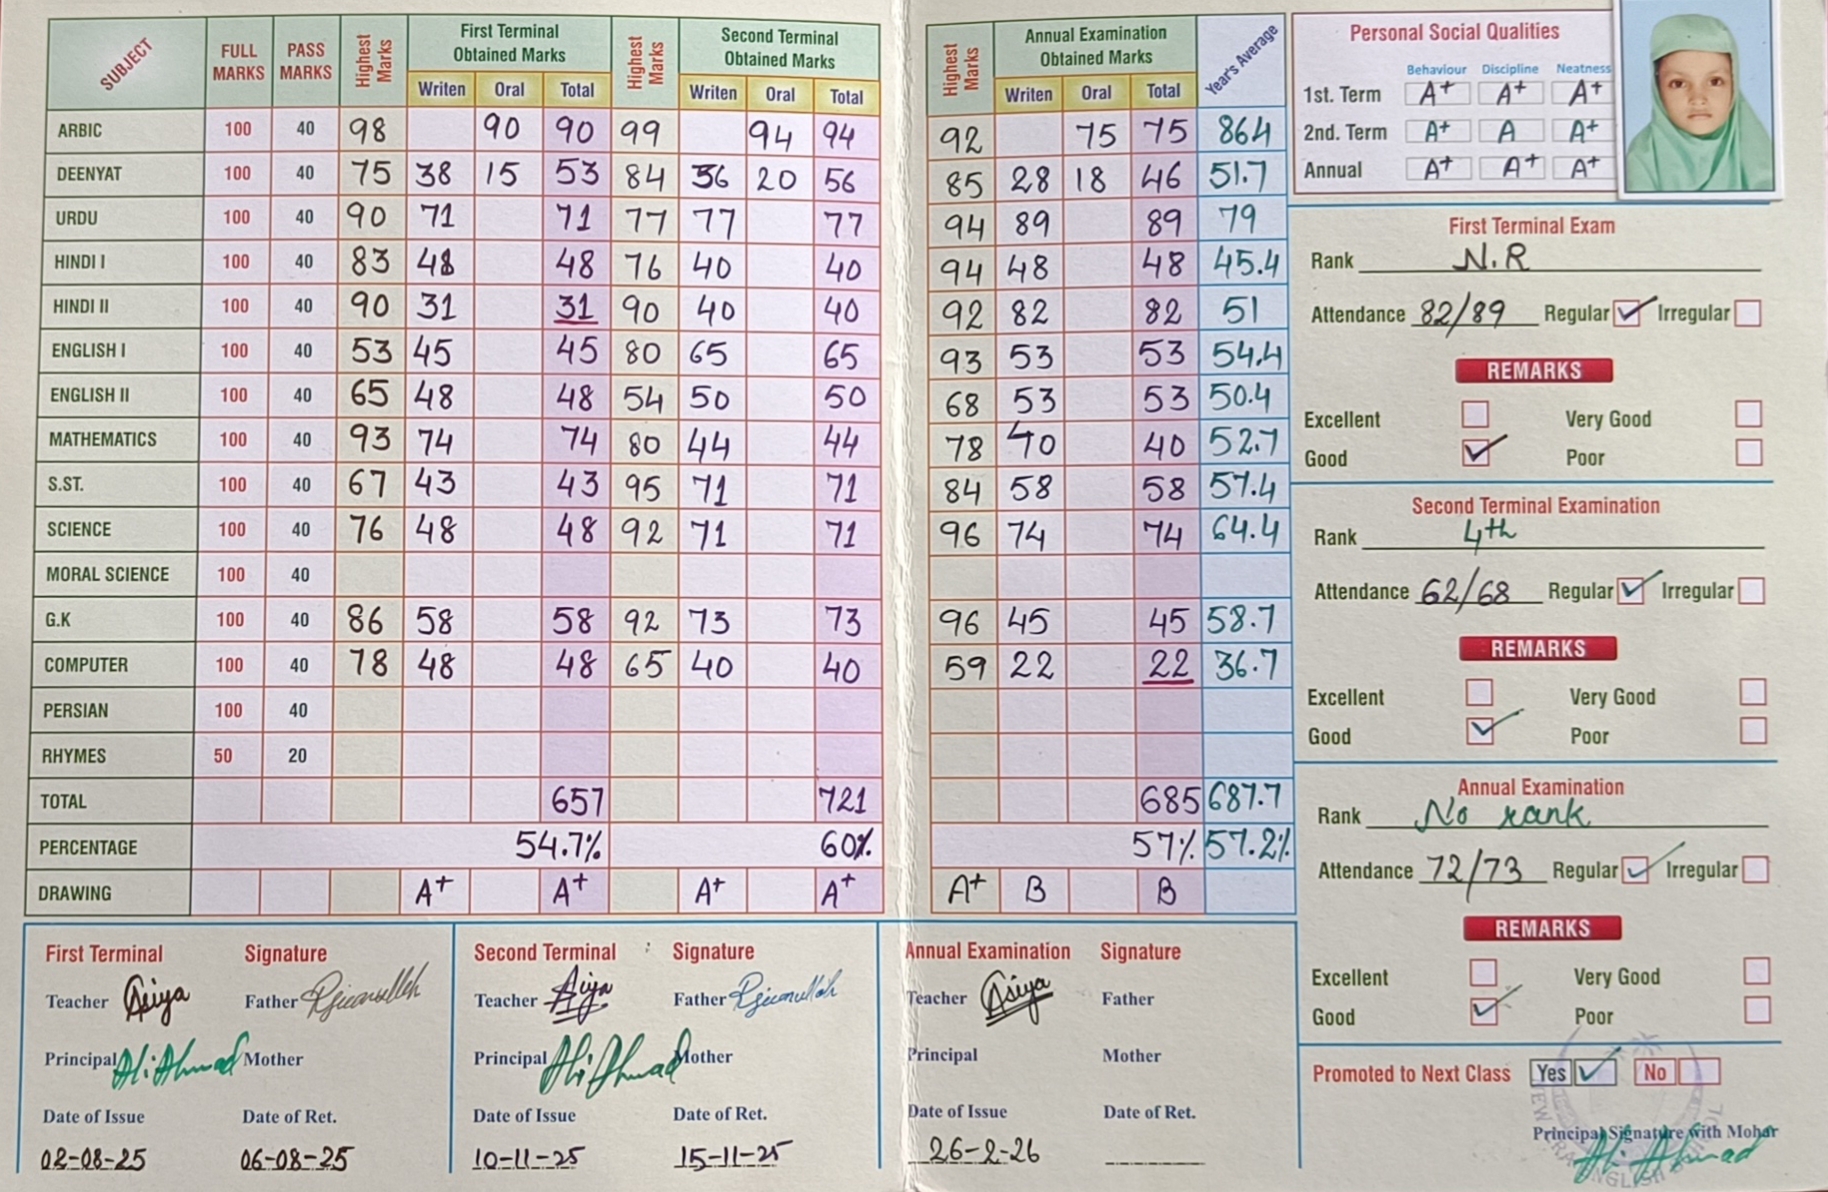 SUBJECT FULL MARKS PASS MARKS Highest Marks First Terminal Obtained Marks Highest Marks Second Terminal Obtained Marks
Writen Oral Total Writen Oral Total
ARBIC 100 40 98 90 90 99 94 94
DEENYAT 100 40 75 38 15 53 84 36 20 56
URDU 100 40 90 71 71 77 77 77
HINDI I 100 40 83 48 48 76 40 40
HINDI II 100 40 90 31 31 90 40 40
ENGLISH I 100 40 53 45 45 80 65 65
ENGLISH II 100 40 65 48 48 54 50 50
MATHEMATICS 100 40 93 74 74 80 44 44
S.ST. 100 40 67 43 43 95 71 71
SCIENCE 100 40 76 48 48 92 71 71
MORAL SCIENCE 100 40
G.K 100 40 86 58 58 92 73 73
COMPUTER 100 40 78 48 48 65 40 40
PERSIAN 100 40
RHYMES 50 20
TOTAL 657 721
PERCENTAGE 54.7% 60%
DRAWING A+ A+ A+ A+
First Terminal Signature
Teacher Asiya Father
Principal Ali Ahmad Mother
Date of Issue Date of Ret.
02-08-25 06-08-25
Second Terminal Signature
Teacher Asiya Father
Principal Ali Ahmad Mother
Date of Issue Date of Ret.
10-11-25 15-11-25
Highest Marks Annual Examination Obtained Marks Year's Average
Writen Oral Total
92 75 75 864
85 28 18 46 51.7
94 89 89 79
94 48 48 45.4
92 82 82 51
93 53 53 54.4
68 53 53 50.4
78 40 40 52.7
84 58 58 57.4
96 74 74 64.4
96 45 45 58.7
59 22 22 36.7
685 687.7
57% 57.2%
A+ B B
Annual Examination Signature
Teacher Asiya Father
Principal Mother
Date of Issue Date of Ret.
26-2-26
Personal Social Qualities
Behaviour Discipline Neatness
1st. Term A+ A+ A+
2nd. Term A+ A A+
Annual A+ A+ A+
First Terminal Exam
Rank N.R
Attendance 82/89 Regular Irregular
REMARKS
Excellent Very Good
Good Poor
Second Terminal Examination
Rank 4th
Attendance 62/68 Regular Irregular
REMARKS
Excellent Very Good
Good Poor
Annual Examination
Rank No rank
Attendance 72/73 Regular Irregular
REMARKS
Excellent Very Good
Good Poor
Promoted to Next Class Yes No
Principal Signature with Mohar
Ali Ahmad